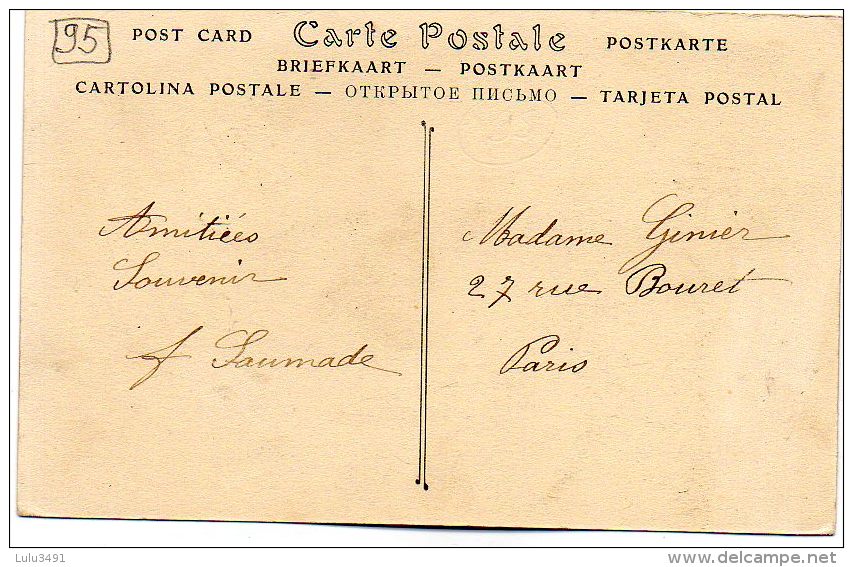 95
POST CARD Carte Postale POSTKARTE
BRIEFKAART — POSTKAART
CARTOLINA POSTALE — ОТКРЫТОЕ ПИСЬМО — TARJETA POSTAL
Amitiées
Souvenir
f Saumade
Madame Ginier
27 rue Bouret
Paris
Lulu3491
www.delcampe.net